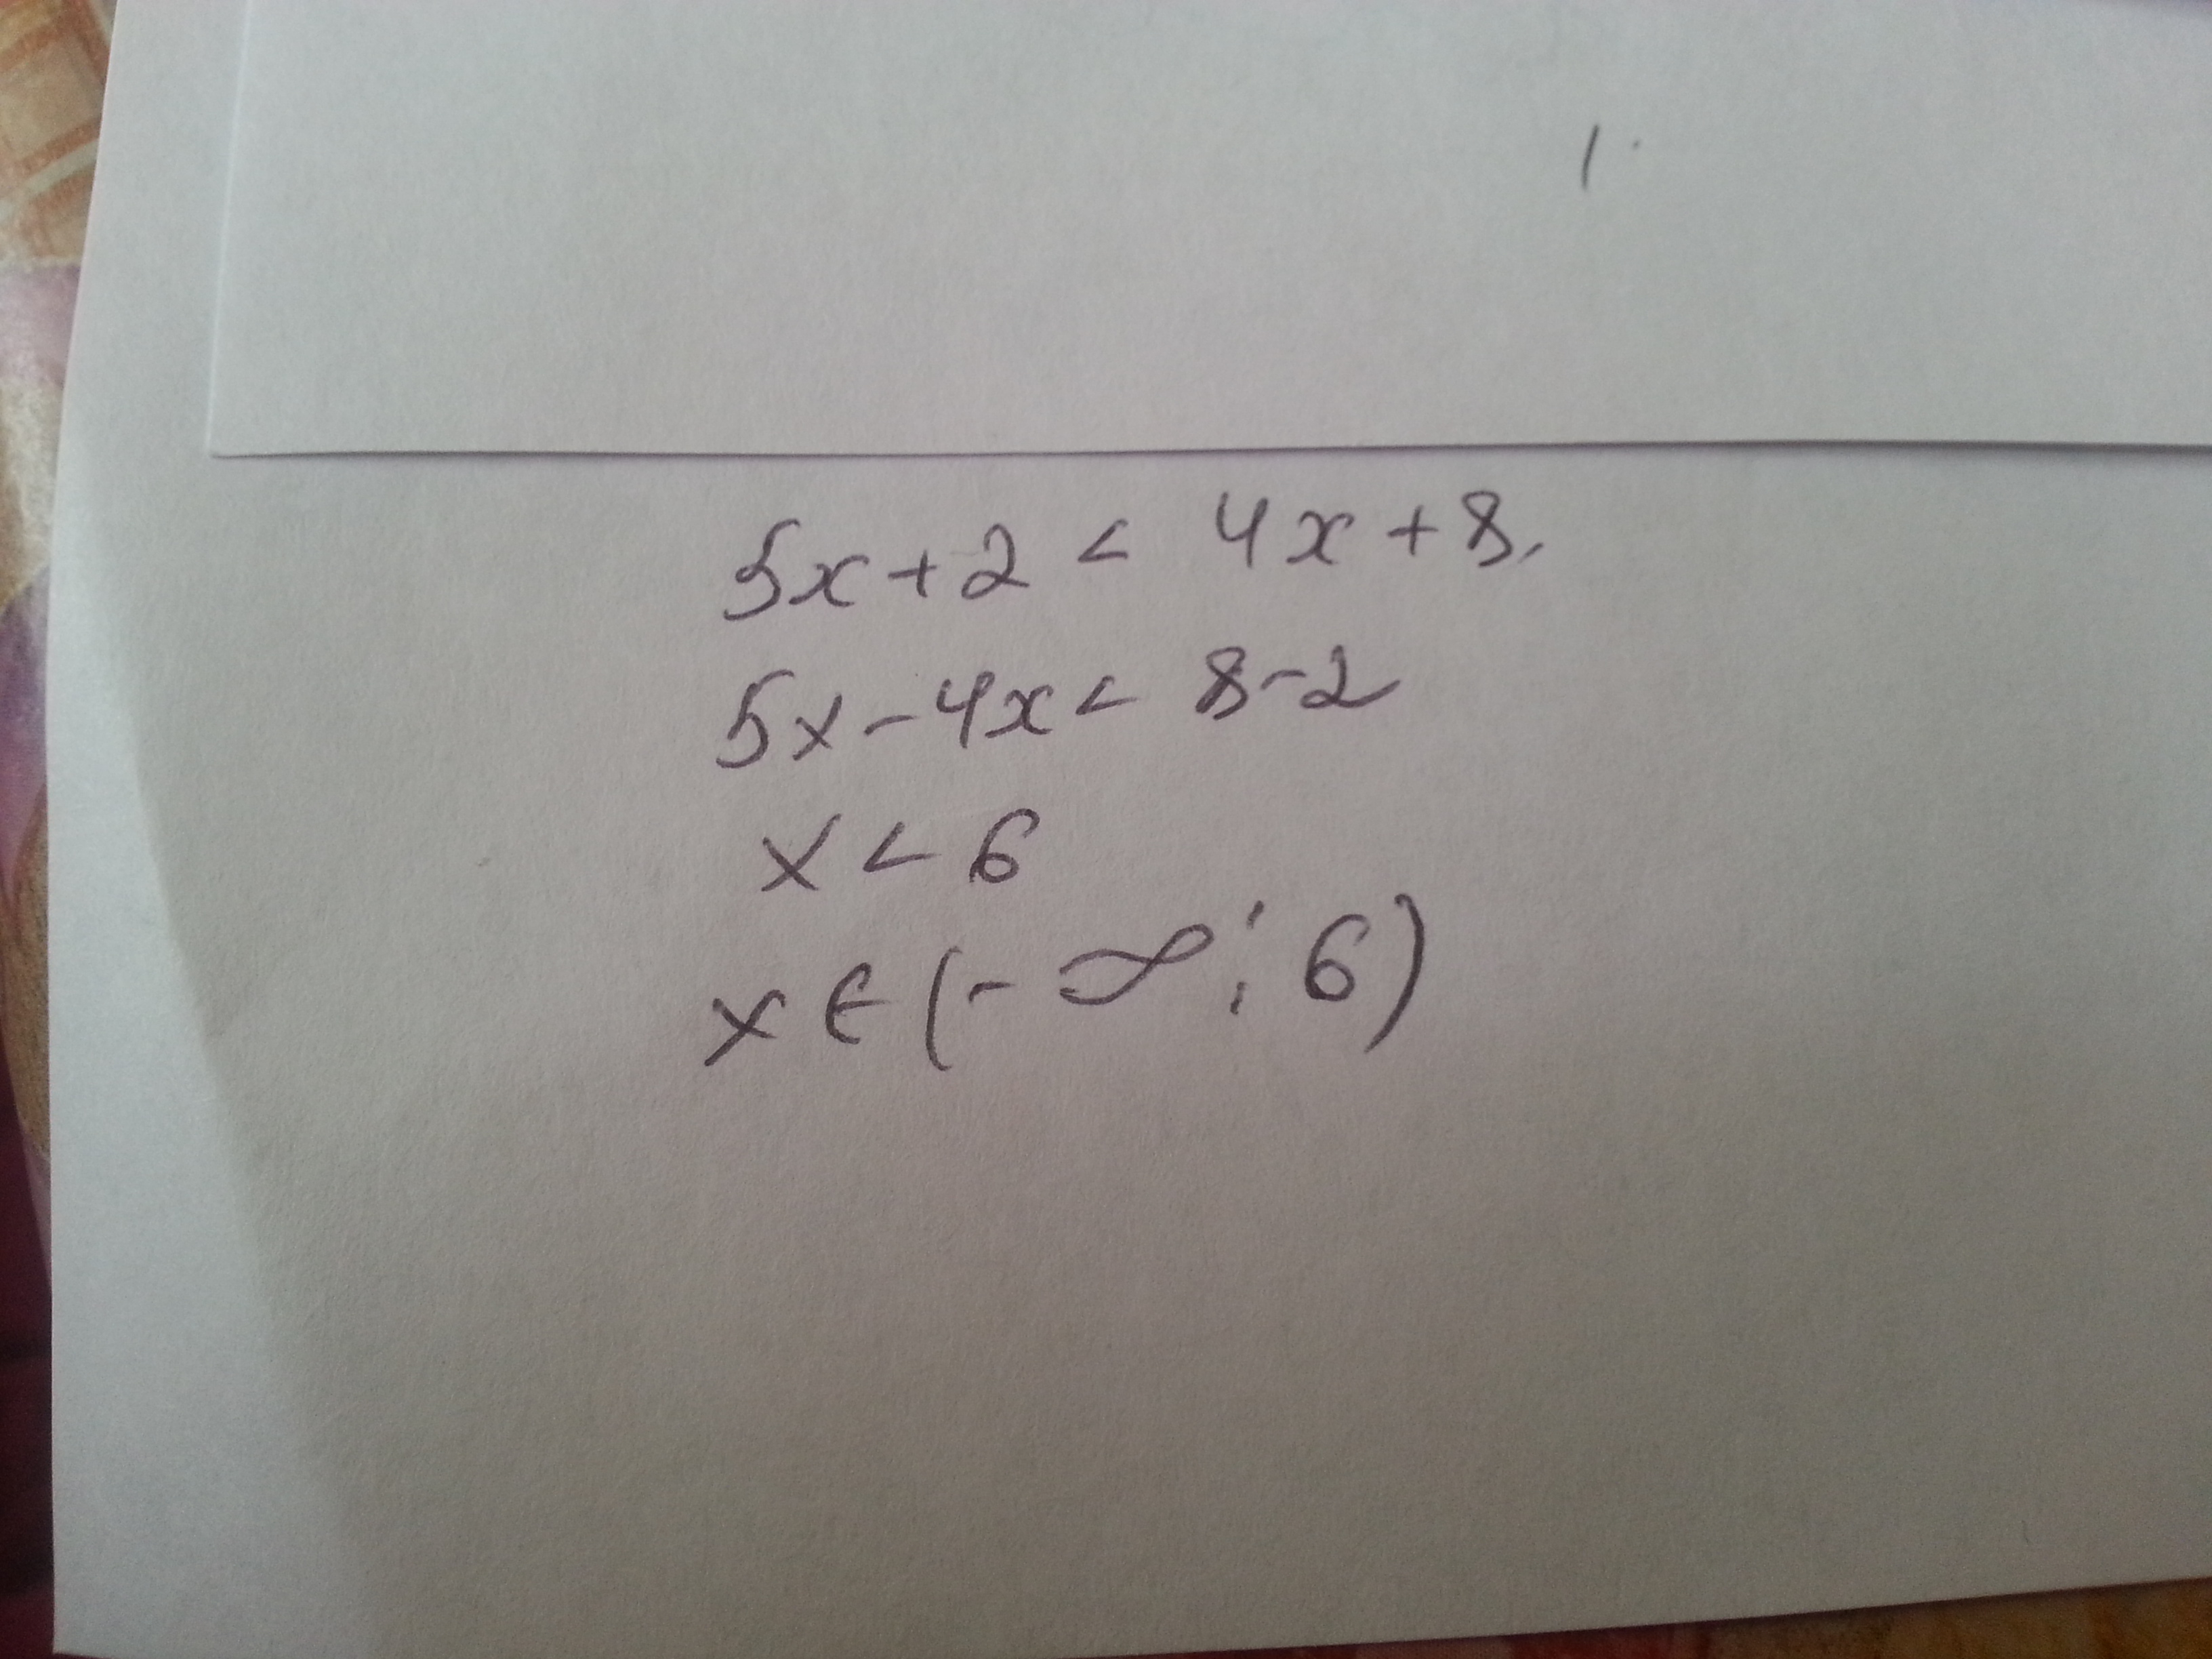 5x+2 < 4x+8,
5x-4x < 8-2
x < 6
x ∈ (-∞; 6)